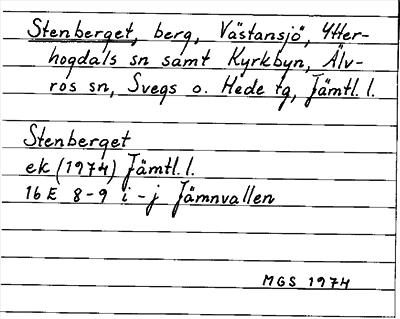 Stenberget, berg, Västansjö, Ytter-
hogdals sn samt Kyrkbyn, Älv-
ros sn, Svegs o. Hede tg, Jämtl. l.
Stenberget
ek (1974) Jämtl. l.
16 E 8-9 i-j Jämnvallen
MGS 1974